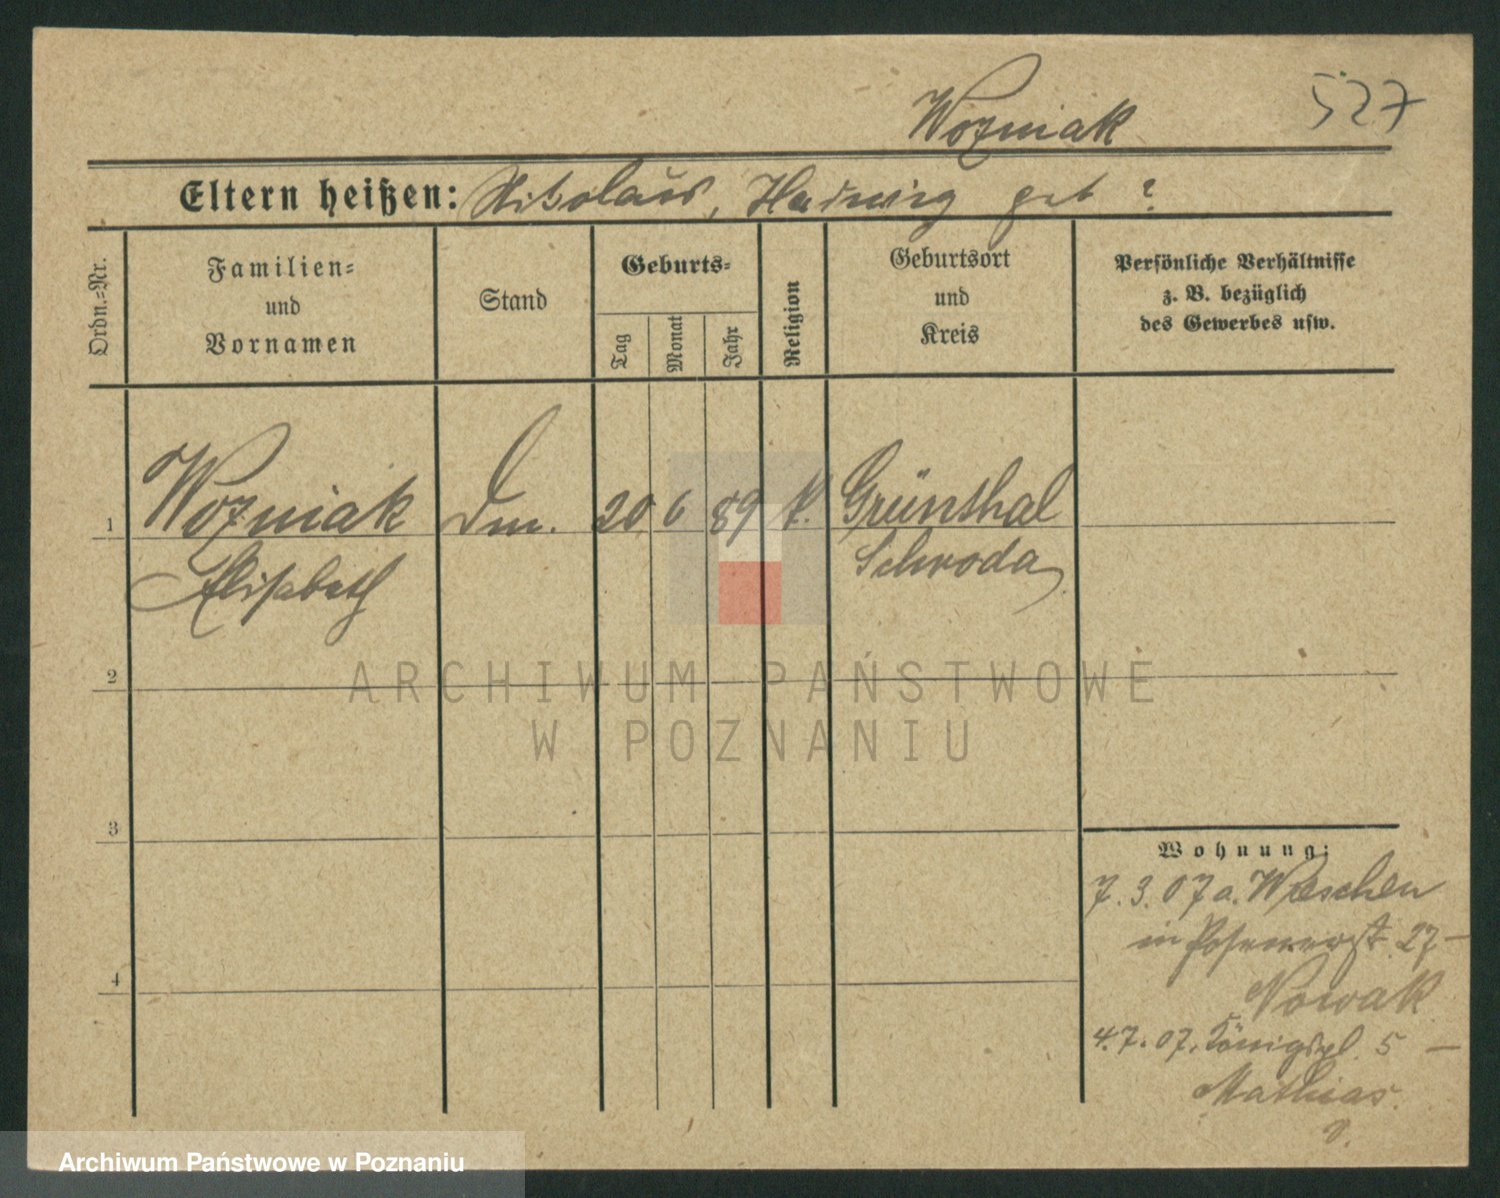 Wozniak
527
Eltern heißen: Nikolaus, Hedwig geb ?
Ordn.-Nr.
Familien-
und
Vornamen
Stand
Geburts-
Tag
Monat
Jahr
Religion
Geburtsort
und
Kreis
Persönliche Verhältnisse
z. B. bezüglich
des Gewerbes usw.
1
Wozniak Dm. 20 6 89 k. Grünthal
Elisabeth Schroda
2
3
4
Wohnung:
7.3.07 a. Wreschen
in Posenerst. 27 -
Nowak
4.7.07. Königspl. 5 -
Mathias
ARCHIWUM PAŃSTWOWE
W POZNANIU
Archiwum Państwowe w Poznaniu